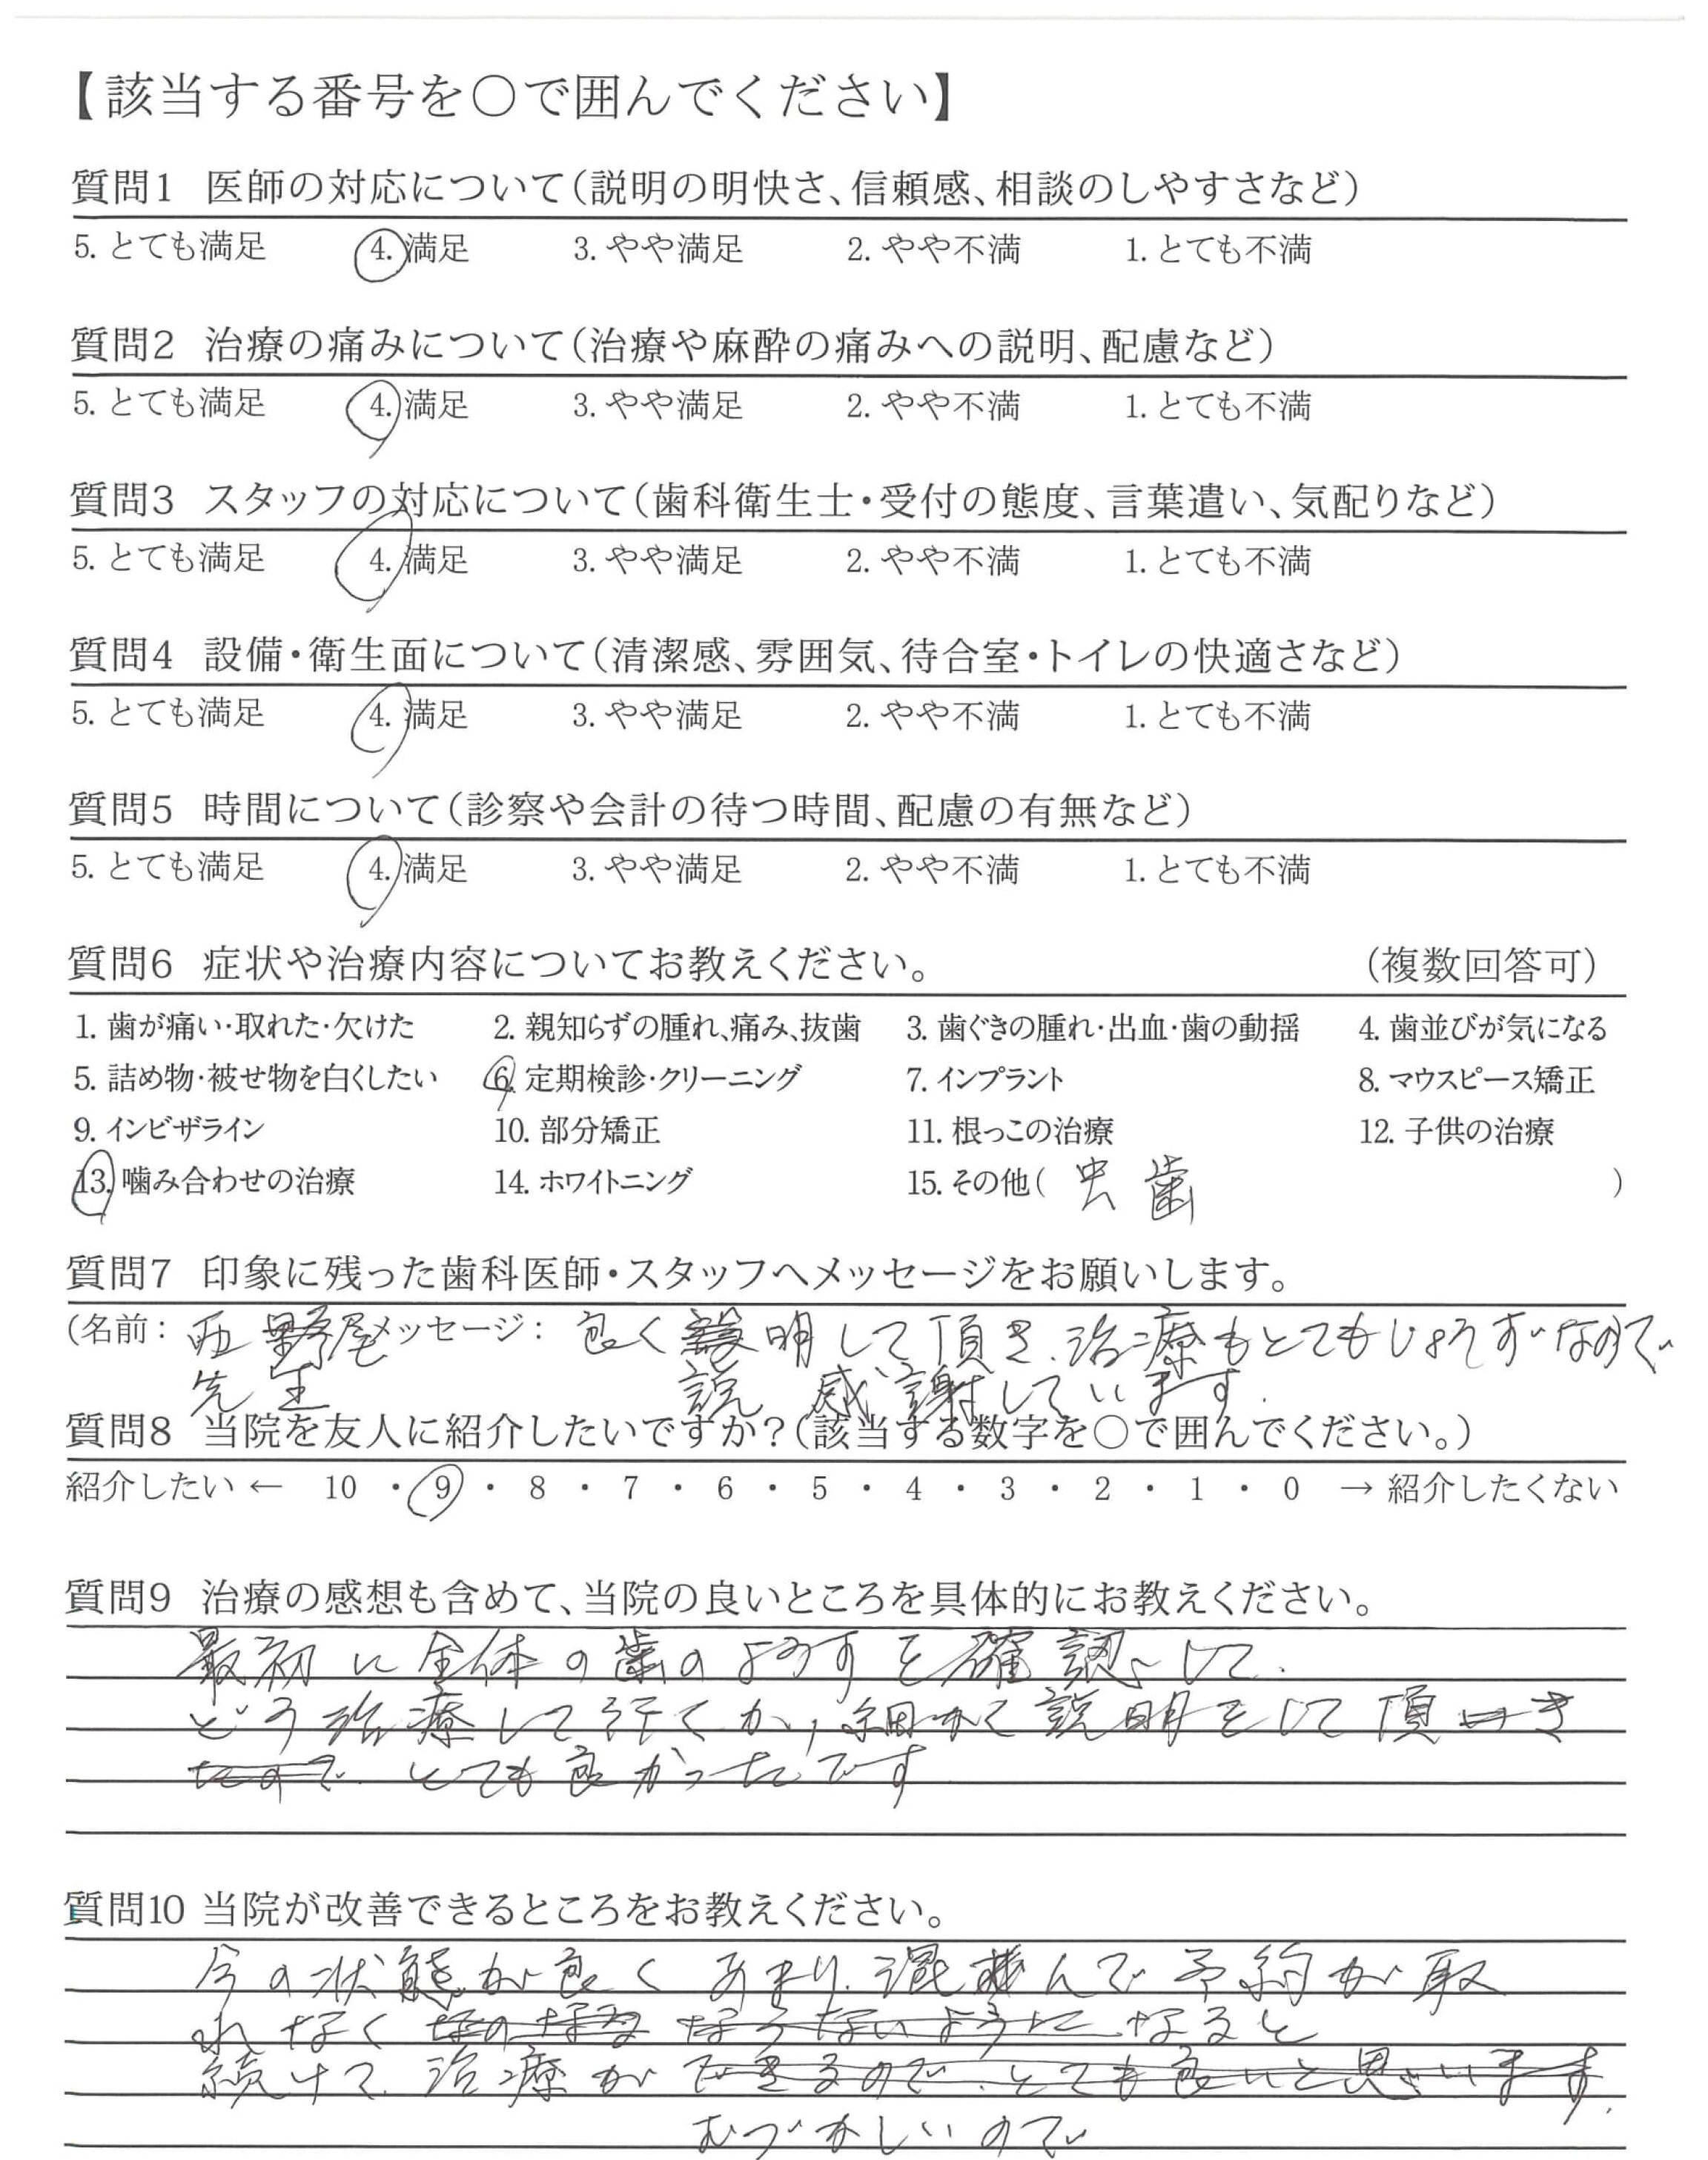 【該当する番号を○で囲んでください】
質問1 医師の対応について(説明の明快さ、信頼感、相談のしやすさなど)
5. とても満足 4. 満足 3. やや満足 2. やや不満 1. とても不満
質問2 治療の痛みについて(治療や麻酔の痛みへの説明、配慮など)
5. とても満足 4. 満足 3. やや満足 2. やや不満 1. とても不満
質問3 スタッフの対応について(歯科衛生士・受付の態度、言葉遣い、気配りなど)
5. とても満足 4. 満足 3. やや満足 2. やや不満 1. とても不満
質問4 設備・衛生面について(清潔感、雰囲気、待合室・トイレの快適さなど)
5. とても満足 4. 満足 3. やや満足 2. やや不満 1. とても不満
質問5 時間について(診察や会計の待つ時間、配慮の有無など)
5. とても満足 4. 満足 3. やや満足 2. やや不満 1. とても不満
質問6 症状や治療内容についてお教えください。 (複数回答可)
1. 歯が痛い・取れた・欠けた 2. 親知らずの腫れ、痛み、抜歯 3. 歯ぐきの腫れ・出血・歯の動揺 4. 歯並びが気になる
5. 詰め物・被せ物を白くしたい 6. 定期検診・クリーニング 7. インプラント 8. マウスピース矯正
9. インビザライン 10. 部分矯正 11. 根っこの治療 12. 子供の治療
13. 噛み合わせの治療 14. ホワイトニング 15. その他( 虫歯 )
質問7 印象に残った歯科医師・スタッフへメッセージをお願いします。
(名前: 西野尾 メッセージ: 良く 明して頂き、治療もとてもじょうずなので
先生 説 感謝しています.
質問8 当院を友人に紹介したいですか?(該当する数字を○で囲んでください。)
紹介したい ← 10 ・ 9 ・ 8 ・ 7 ・ 6 ・ 5 ・ 4 ・ 3 ・ 2 ・ 1 ・ 0 → 紹介したくない
質問9 治療の感想も含めて、当院の良いところを具体的にお教えください。
最初に全体の歯のようすを確認して.
どう治療して行くか, 細かく説明をして頂き
たので. とても良かったです
質問10 当院が改善できるところをお教えください。
今の状態が良く あまり. 混んで予約が取
れなく ならないように なると
続けて. 治療が できるので. とても良いと思います.
むづかしいので